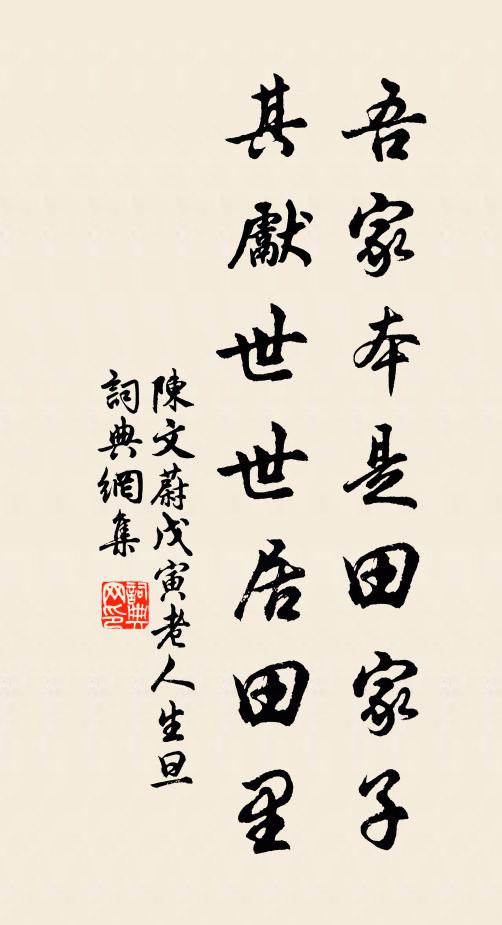 吾家本是田家子
其獻世世居田里
陳文蔚戊寅老人生旦
詞典網集
詞典
网印